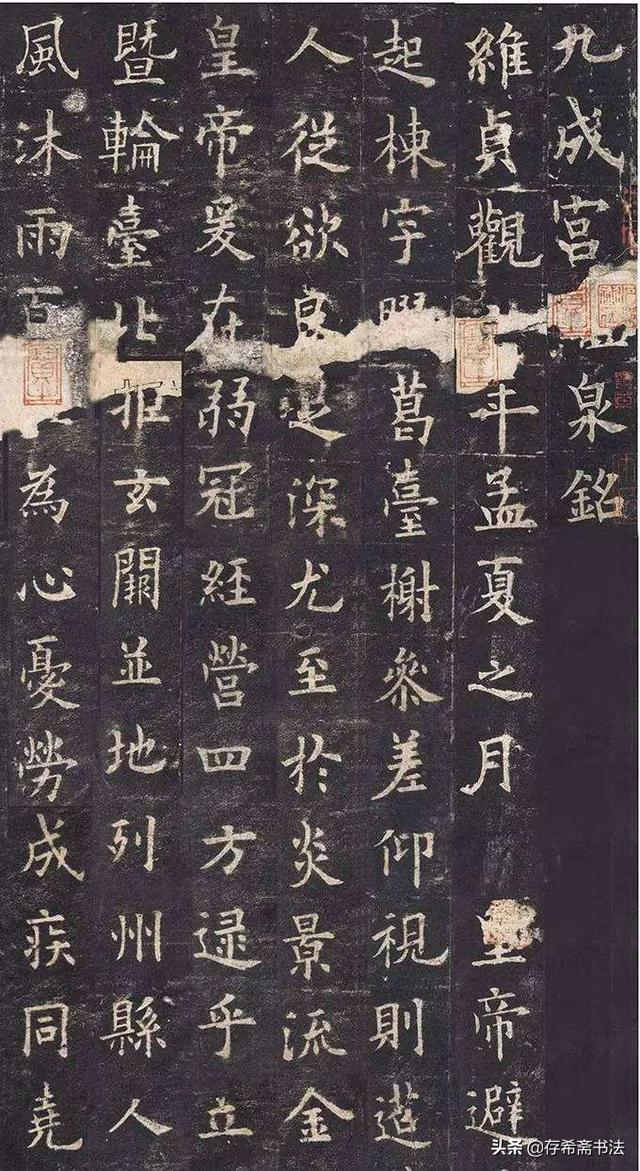 九成宮泉銘
維貞觀年孟夏之月 皇帝避
起棟宇葛臺榭參差仰視則迢
人從欲良足深尤至於炎景流金
皇帝爰在弱冠經營四方逮乎立
暨輪臺北拒玄闕並地列州縣人
風沐雨百為心憂勞成疾同堯
头条 @存希斋书法